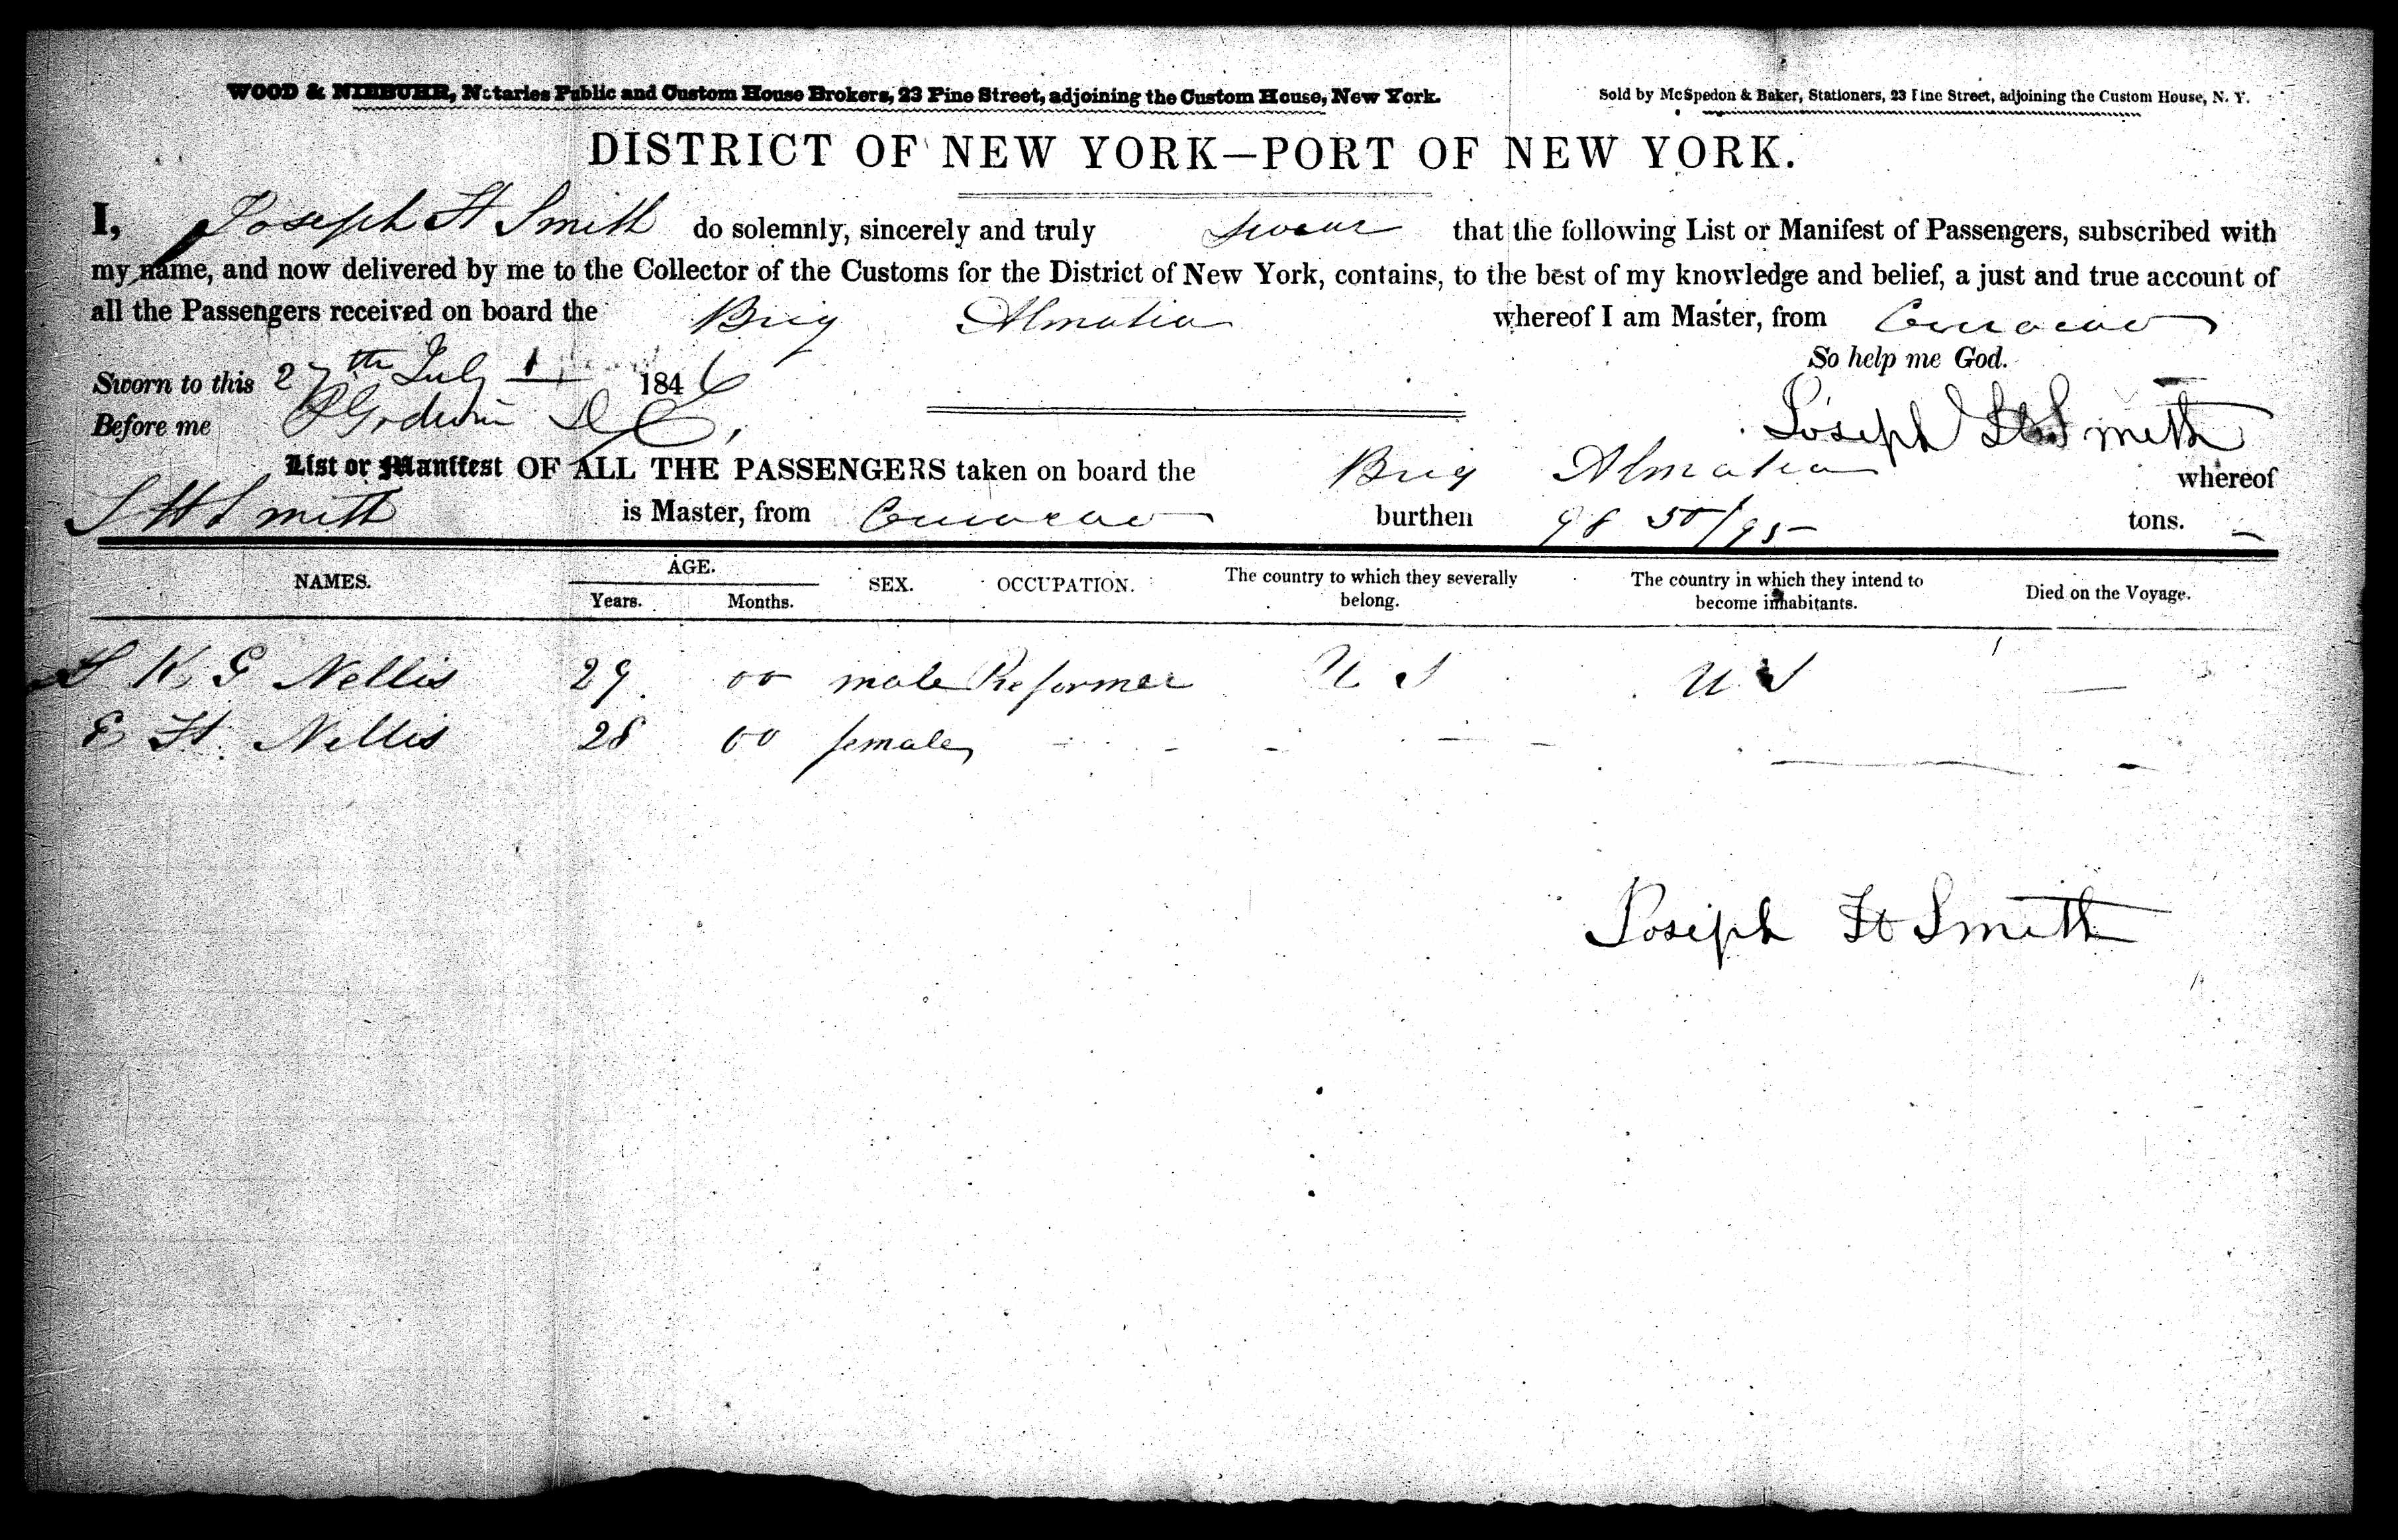 WOOD & NIEBUHR, Notaries Public and Custom House Brokers, 23 Pine Street, adjoining the Custom House, New York.
Sold by McSpedon & Baker, Stationers, 23 Pine Street, adjoining the Custom House, N. Y.
DISTRICT OF NEW YORK—PORT OF NEW YORK.
I, Joseph H Smith do solemnly, sincerely and truly swear that the following List or Manifest of Passengers, subscribed with
my name, and now delivered by me to the Collector of the Customs for the District of New York, contains, to the best of my knowledge and belief, a just and true account of
all the Passengers received on board the Brig Almatia whereof I am Master, from Curacao
So help me God.
Sworn to this 27th July 1846
Joseph H Smith
Before me
List or Manifest OF ALL THE PASSENGERS taken on board the Brig Almatia whereof
J H Smith is Master, from Curacao burthen 98 50/95 tons.
NAMES. AGE. SEX. OCCUPATION. The country to which they severally belong. The country in which they intend to become inhabitants. Died on the Voyage.
Years. Months.
K G Nellis 29 00 male Performer U S U S —
E H Nellis 28 00 female - - - - - — -
Joseph H Smith